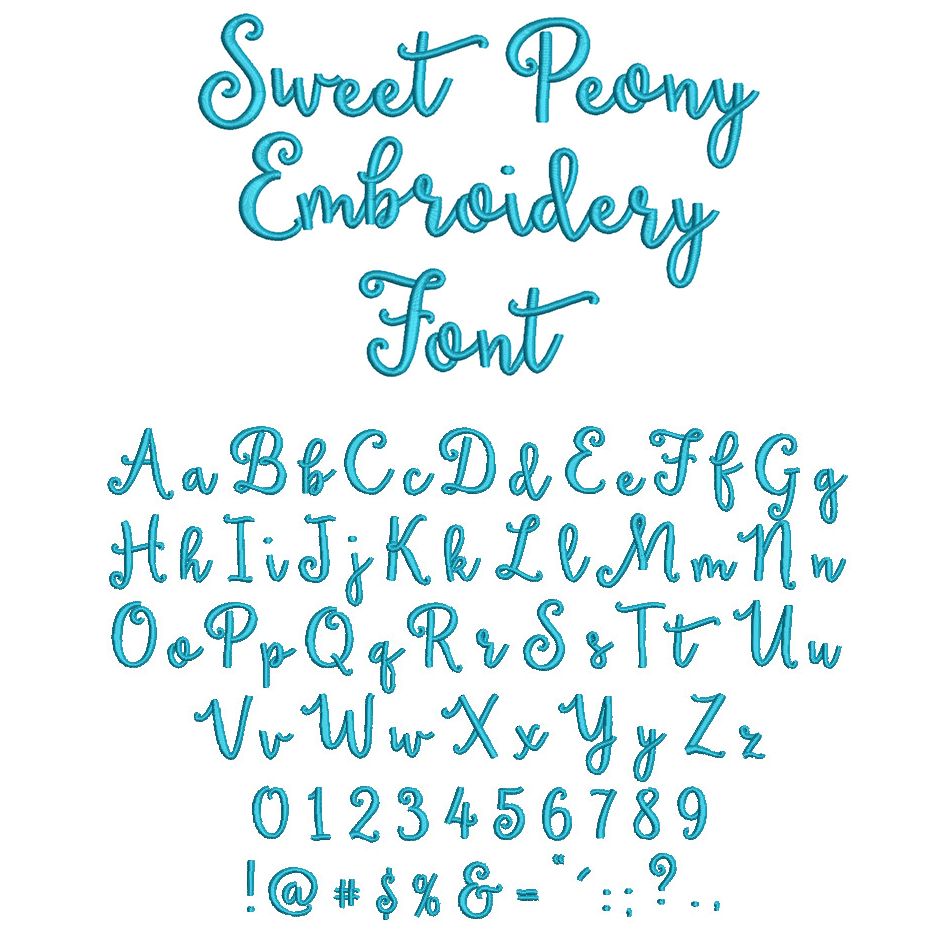 Sweet Peony
Embroidery
Font
Aa Bb Cc Dd Ee Ff Gg
Hh Ii Jj Kk Ll Mm Nn
Oo Pp Qq Rr Ss Tt Uu
Vv Ww Xx Yy Zz
0 1 2 3 4 5 6 7 8 9
! @ # $ % & = “ ‘ : ; ? . ,